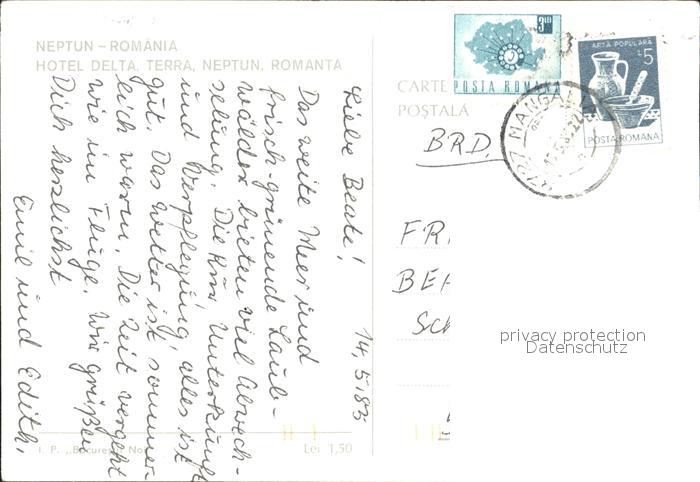 NEPTUN – ROMÂNIA
HOTEL DELTA, TERRA, NEPTUN, ROMANTA
14.5.83
Liebe Beate!
Das weite Meer und
frisch-grünende Laub-
wälder bieten viel Abwech-
selung. Die Kur, Unterkunft
und Verpflegung, alles ist
gut. Das Wetter ist sommer-
lich warm. Die Zeit vergeht
wie im Fluge. Wir grüßen
Dich herzlichst
Emil und Edith.
I. P. „Bucureștii Noi”
Lei 1,50
CARTE
POȘTALĂ
3 LEI
POSTA ROMANA
ARTĂ POPULARĂ
L5
POSTA ROMANA
MANGALIA
BRD
FR
BE
SC
privacy protection
Datenschutz